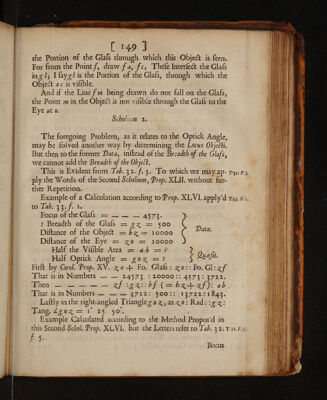 [ 149 ]
the Portion of the Glaſs through which this Object is ſeen.
For from the Point f, draw f a, f c, Theſe Interſect the Glaſs
in g l; I ſay g l is the Portion of the Glaſs, through which the
Object a c is viſible.
And if the Line f m being drawn do not fall on the Glaſs,
the Point m in the Object is not viſible through the Glaſs to the
Eye at o.
Scholium 2.
The foregoing Problem, as it relates to the Optick Angle,
may be ſolved another way by determining the Locus Objecti.
But then to the former Data, inſtead of the Breadth of the Glaſs,
we cannot add the Breadth of the Object.
This is Evident from Tab. 32. f. 5. To which we may ap-
ply the Words of the Second Scholium, Prop. XLII. without fur-
ther Repetition.
Example of a Calculation according to Prop. XLVI. apply'd
to Tab. 33. f. 1.
Focus of the Glaſs = — — — 4573.
½ Breadth of the Glaſs = g z = 500
Diſtance of the Object = b z = 10000
Diſtance of the Eye = z o = 20000
Data.
Half the Viſible Area = a b = ?
Half Optick Angle = g o z = ?
Quæſit.
Firſt by Corol. Prop. XV. z o + Fo. Glaſs : z o :: Fo. Gl : z f
That is in Numbers — — 24573 : 20000 :: 4573 : 3722.
Then — — — — — z f : g z :: b f ( = b z + z f ) : a b
That is in Numbers — — 3722 : 500 :: 13722 : 1843.
Laſtly in the right-angled Triangle g o z, as z o : Rad :: g z :
Tang. ∠ g o z = 1° 25′ 50″.
Example Calculated according to the Method Propos'd in
this Second Schol. Prop. XLVI. but the Letters refer to Tab. 32.
f. 5.
Focus